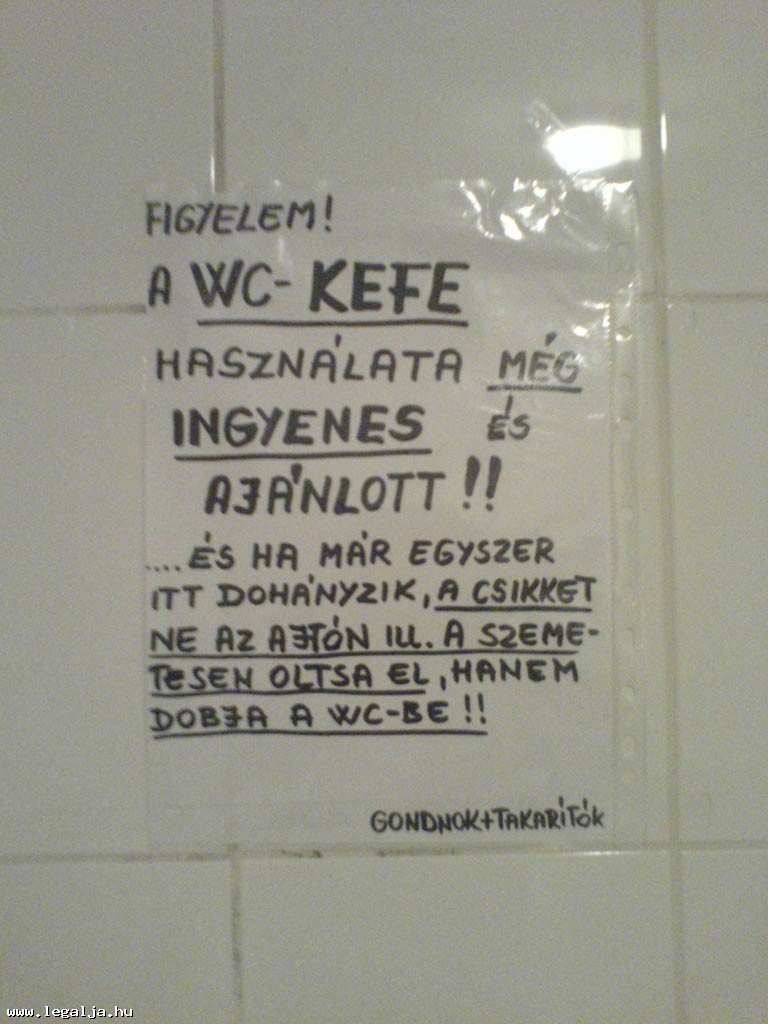 FIGYELEM!
A WC- KEFE
HASZNÁLATA MÉG
INGYENES ÉS
AJÁNLOTT!!
....ÉS HA MÁR EGYSZER
ITT DOHÁNYZIK, A CSIKKET
NE AZ AJTÓN ILL. A SZEME-
TESEN OLTSA EL, HANEM
DOBJA A WC-BE!!
GONDNOK+TAKARÍTÓK
www.legalja.hu